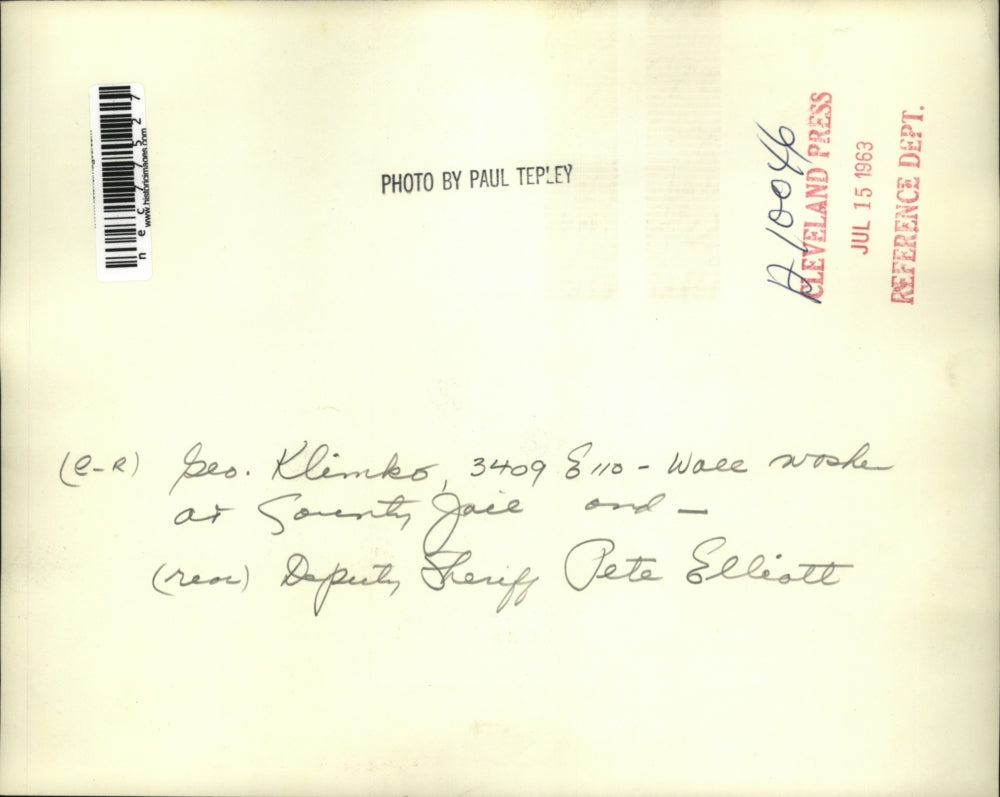 nec77527
www.historicimages.com
PHOTO BY PAUL TEPLEY
A-10046
CLEVELAND PRESS
JUL 15 1963
REFERENCE DEPT.
(L-R) Geo. Klimko, 3409 E 110 - Wall washer
at County Jail and -
(rear) Deputy Sheriff Pete Elliott